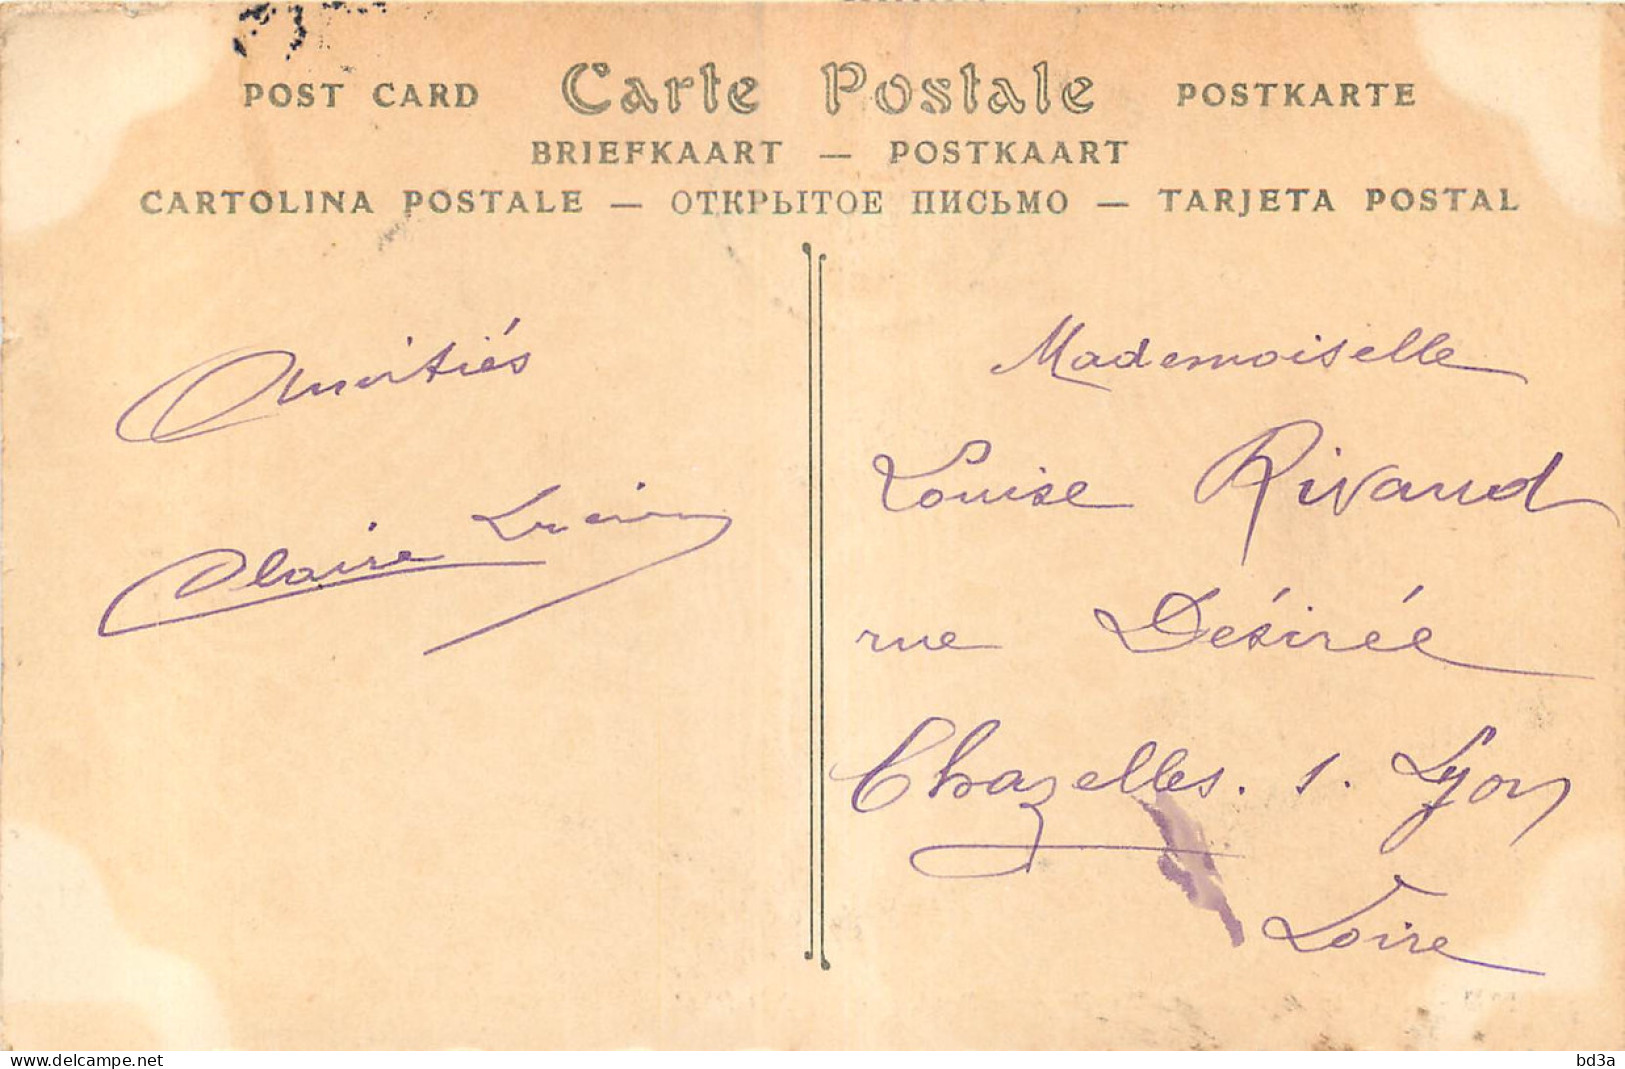 POST CARD Carte Postale POSTKARTE
BRIEFKAART — POSTKAART
CARTOLINA POSTALE — ОТКРЫТОЕ ПИСЬМО — TARJETA POSTAL
Amitiés
Claire
Mademoiselle
Louise Rivaud
rue Désirée
Chazelles. s. Lyon
Loire
www.delcampe.net
bd3a